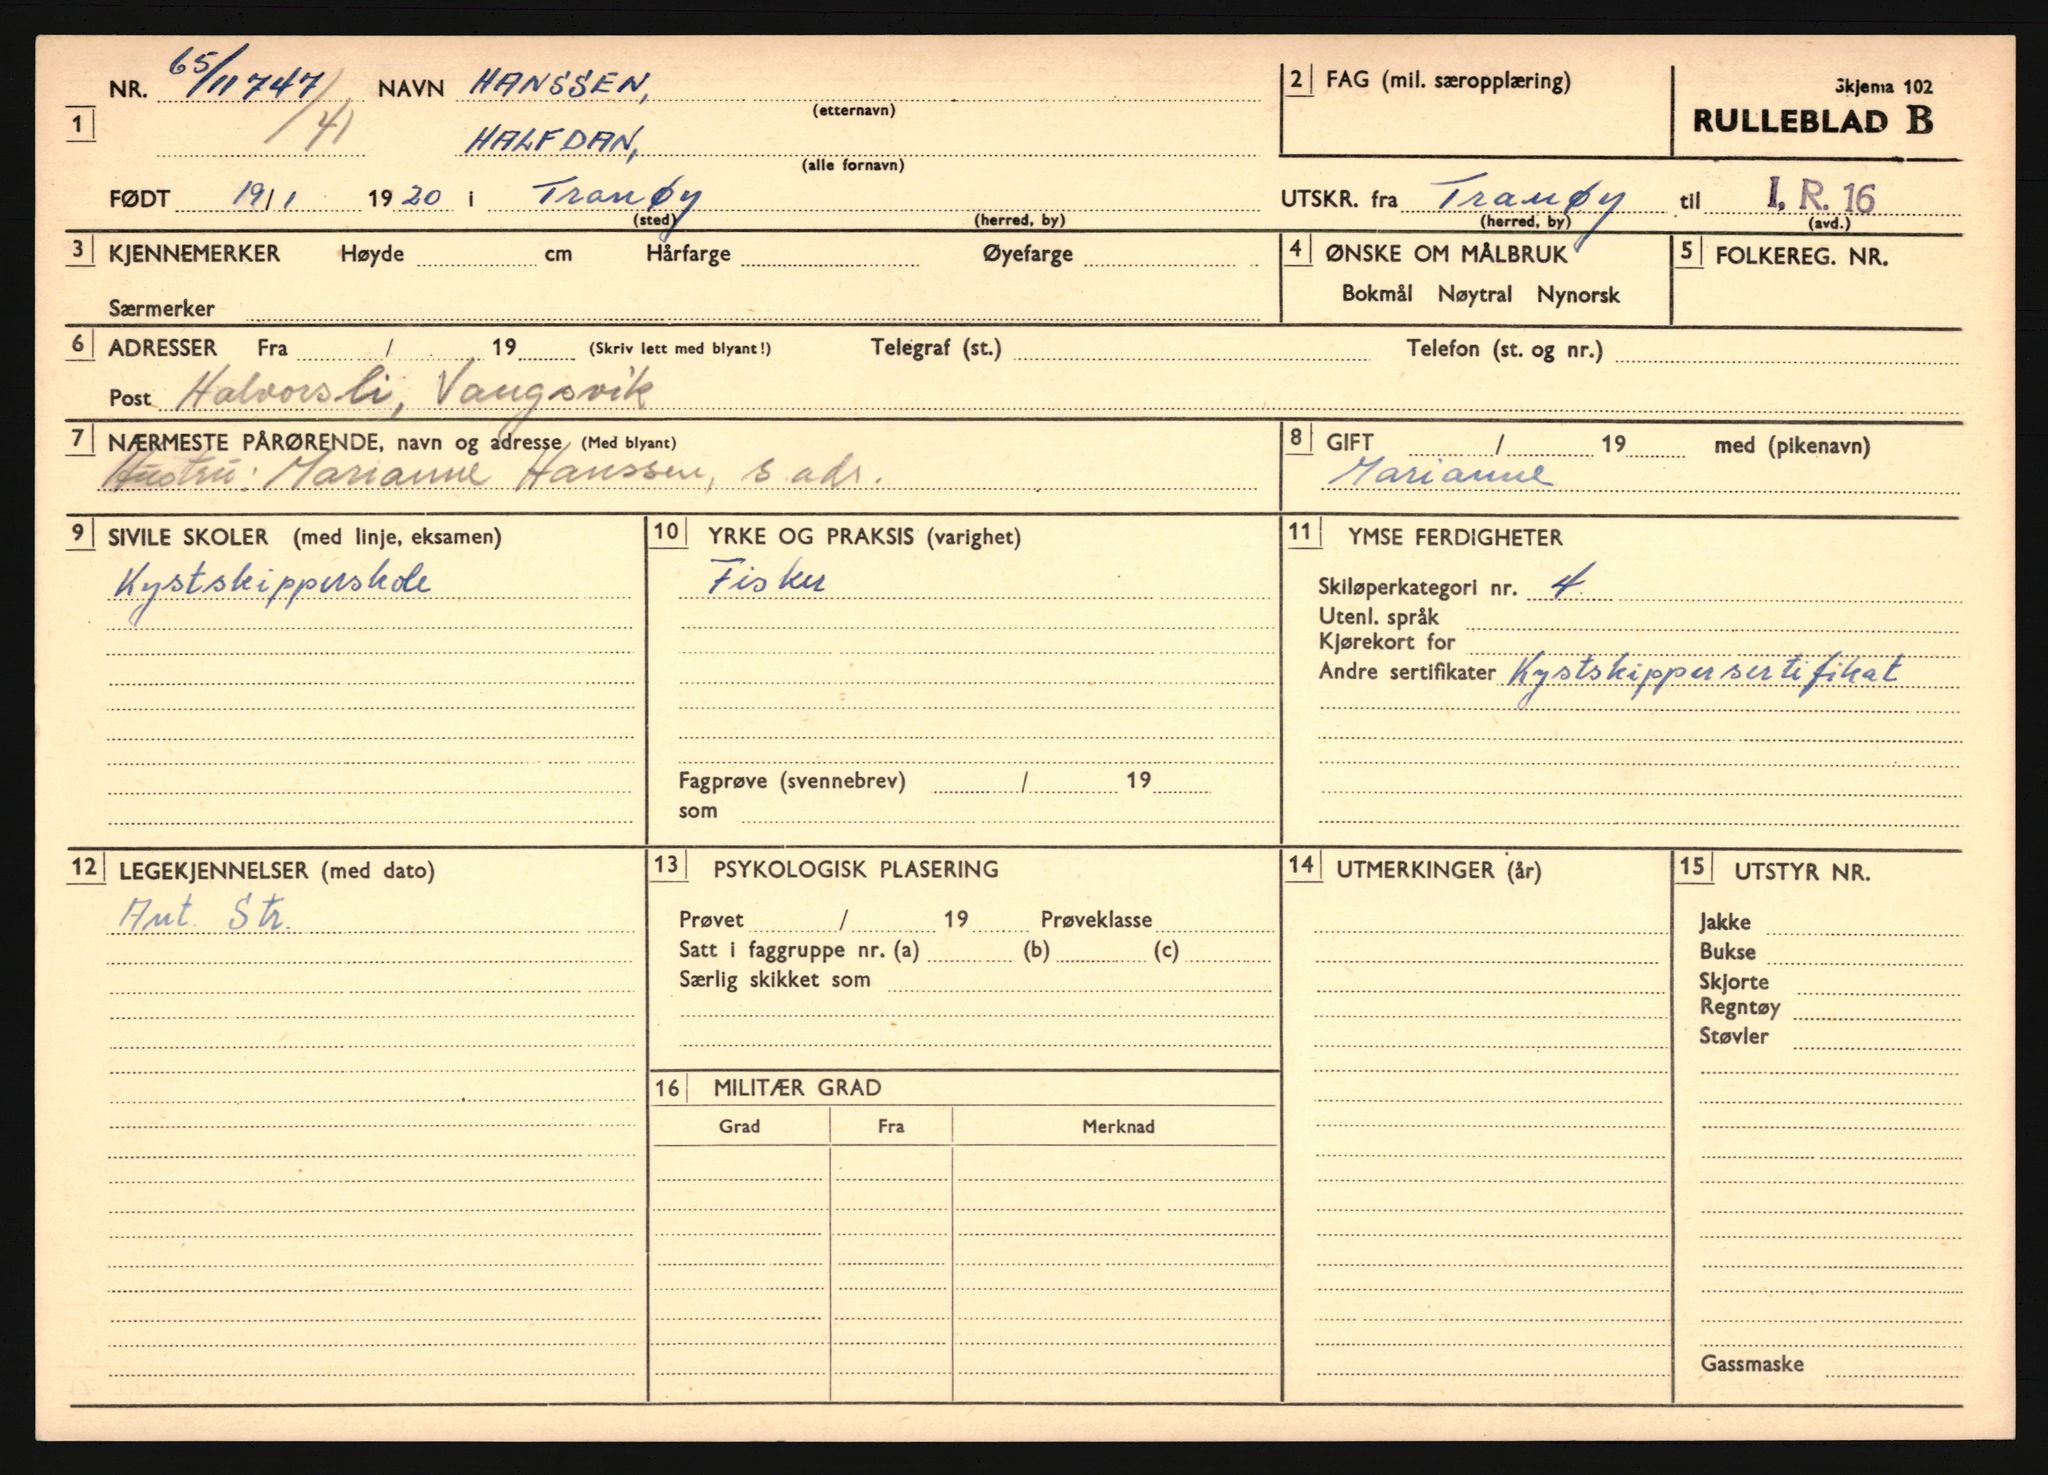 Skjema 102
RULLEBLAD B
1 NR. 65/11747/41 NAVN HANSSEN,
(etternavn)
HALFDAN,
(alle fornavn)
FØDT 19/1 1920 i Tranøy
(sted) (herred, by)
2 FAG (mil. særopplæring)
UTSKR. fra Tranøy til I.R.16
(herred, by) (avd.)
3 KJENNEMERKER Høyde cm Hårfarge Øyefarge
Særmerker
4 ØNSKE OM MÅLBRUK
Bokmål Nøytral Nynorsk
5 FOLKEREG. NR.
6 ADRESSER Fra / 19 (Skriv lett med blyant!) Telegraf (st.) Telefon (st. og nr.)
Post Halvorsli, Vangsvik
7 NÆRMESTE PÅRØRENDE, navn og adresse (Med blyant)
Hustru: Marianne Hanssen, s adr.
8 GIFT / 19 med (pikenavn)
Marianne
9 SIVILE SKOLER (med linje, eksamen)
Kystskipperskole
10 YRKE OG PRAKSIS (varighet)
Fisker
Fagprøve (svennebrev) / 19
som
11 YMSE FERDIGHETER
Skiløperkategori nr. 4
Utenl. språk
Kjørekort for
Andre sertifikater Kystskippersertifikat
12 LEGEKJENNELSER (med dato)
Ant. Str.
13 PSYKOLOGISK PLASERING
Prøvet / 19 Prøveklasse
Satt i faggruppe nr. (a) (b) (c)
Særlig skikket som
16 MILITÆR GRAD
Grad Fra Merknad
14 UTMERKINGER (år)
15 UTSTYR NR.
Jakke
Bukse
Skjorte
Regntøy
Støvler
Gassmaske